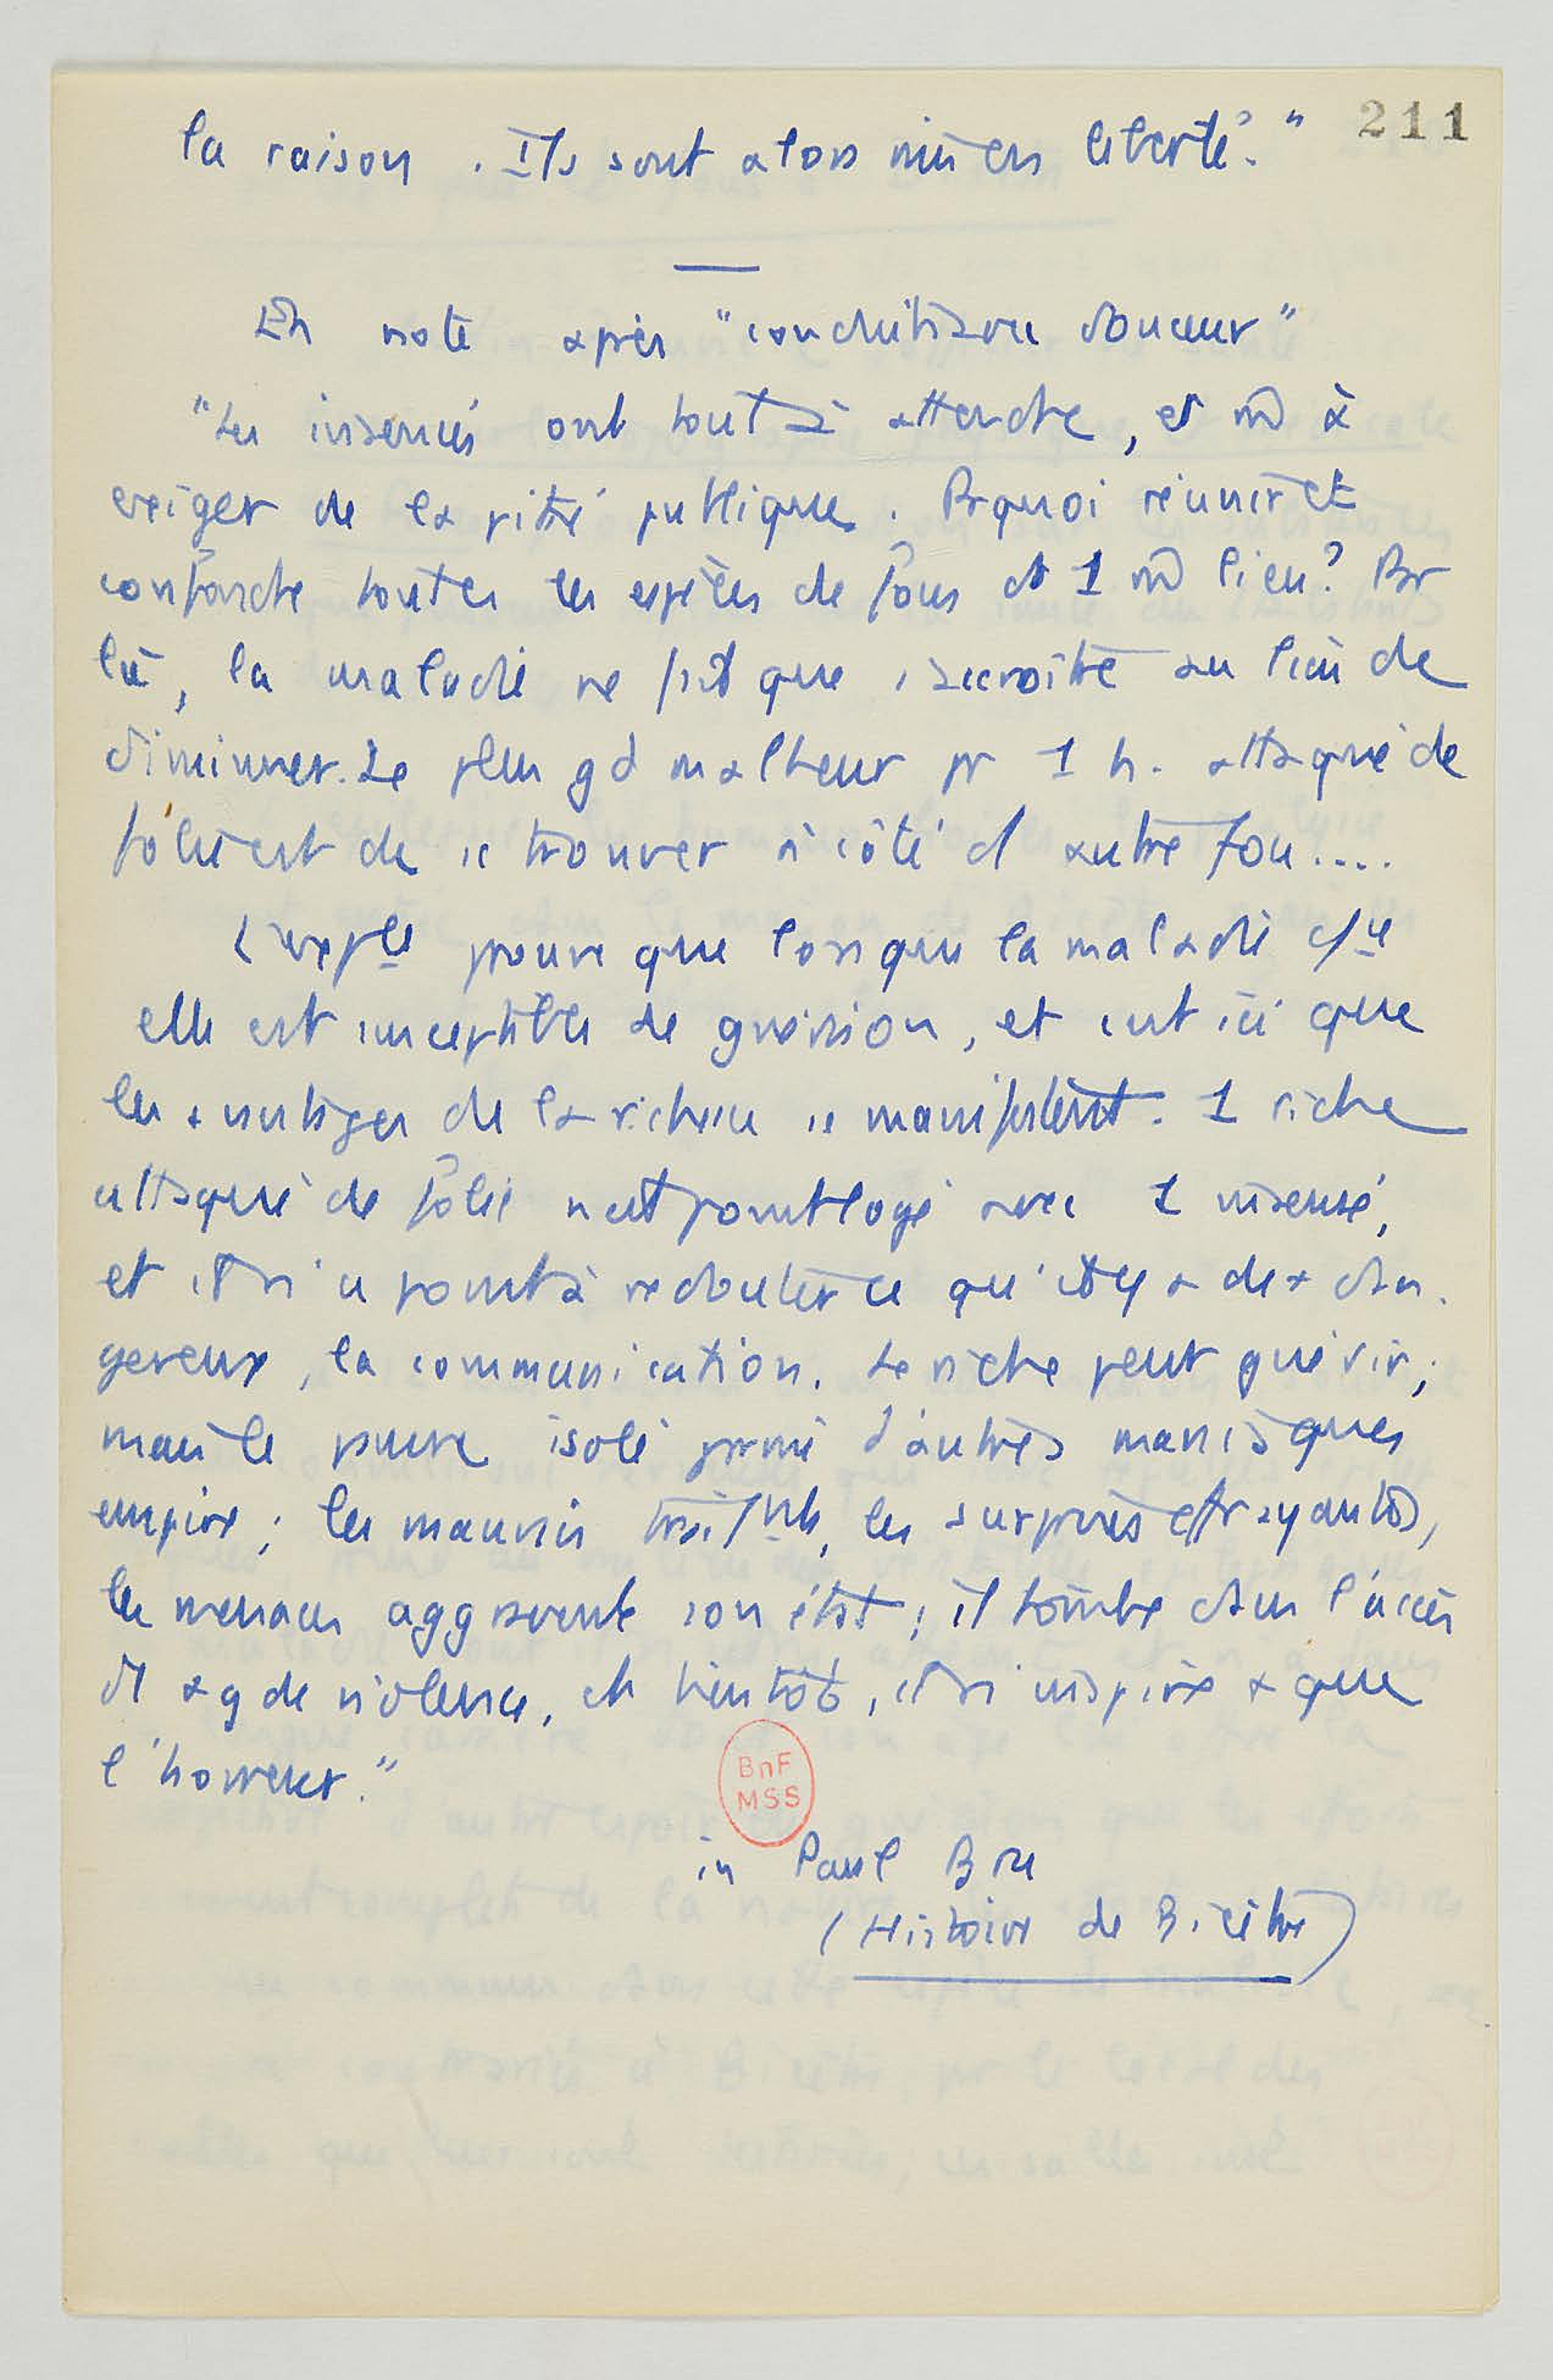 211
la raison. Ils sont alors mis en liberté."
En note après "conduits avec douceur"
"Les insensés ont tout à attendre, et m̂ à
exiger de la pitié publique. Prquoi réunir et
confondre toutes les espèces de fous ds 1 m̂ lieu? Par
là, la maladie ne fait que s'accroître au lieu de
diminuer. Le plus gd malheur pr 1 h. attaqué de
folie est de se trouver à côté d' autre fou....
L'expce prouve que lorsque la maladie
elle est susceptible de guérison, et c'est ici que
les avantages de la richesse se manifestent. 1 riche
attaqué de folie n'est point logé avec 1 insensé,
et il n'a point à redouter ce qu'il y a de + dan-
gereux, la communication. Le riche peut guérir;
mais le pauvre isolé parmi d'autres maniaques
empire; les mauvais traitmts, les surprises effrayantes,
les menaces aggravent son état; il tombe dans l'accès
de violence, et bientôt, il n'inspire + que
l'horreur."
BnF
MSS
in Paul Bru
(Histoire de Bicêtre)